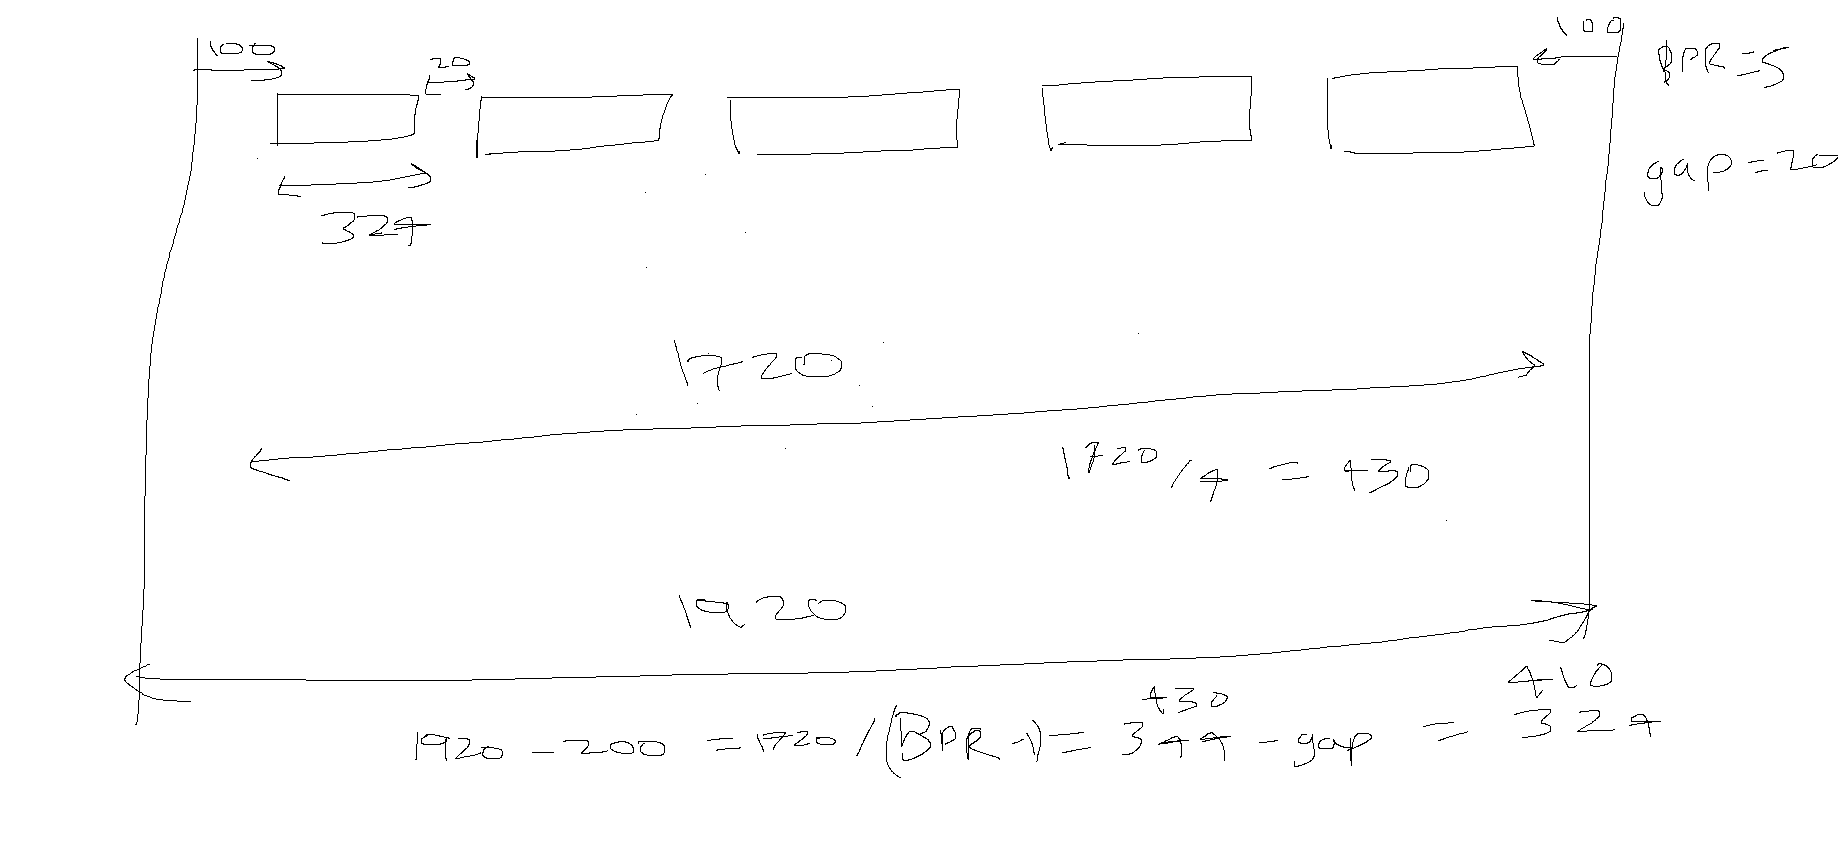 100
20
100
BPR = 5
gap = 20
324
1720
1720/4 = 430
1920
430
410
1920 - 200 = 1720 / (BPR -1) = 344 - gap = 324